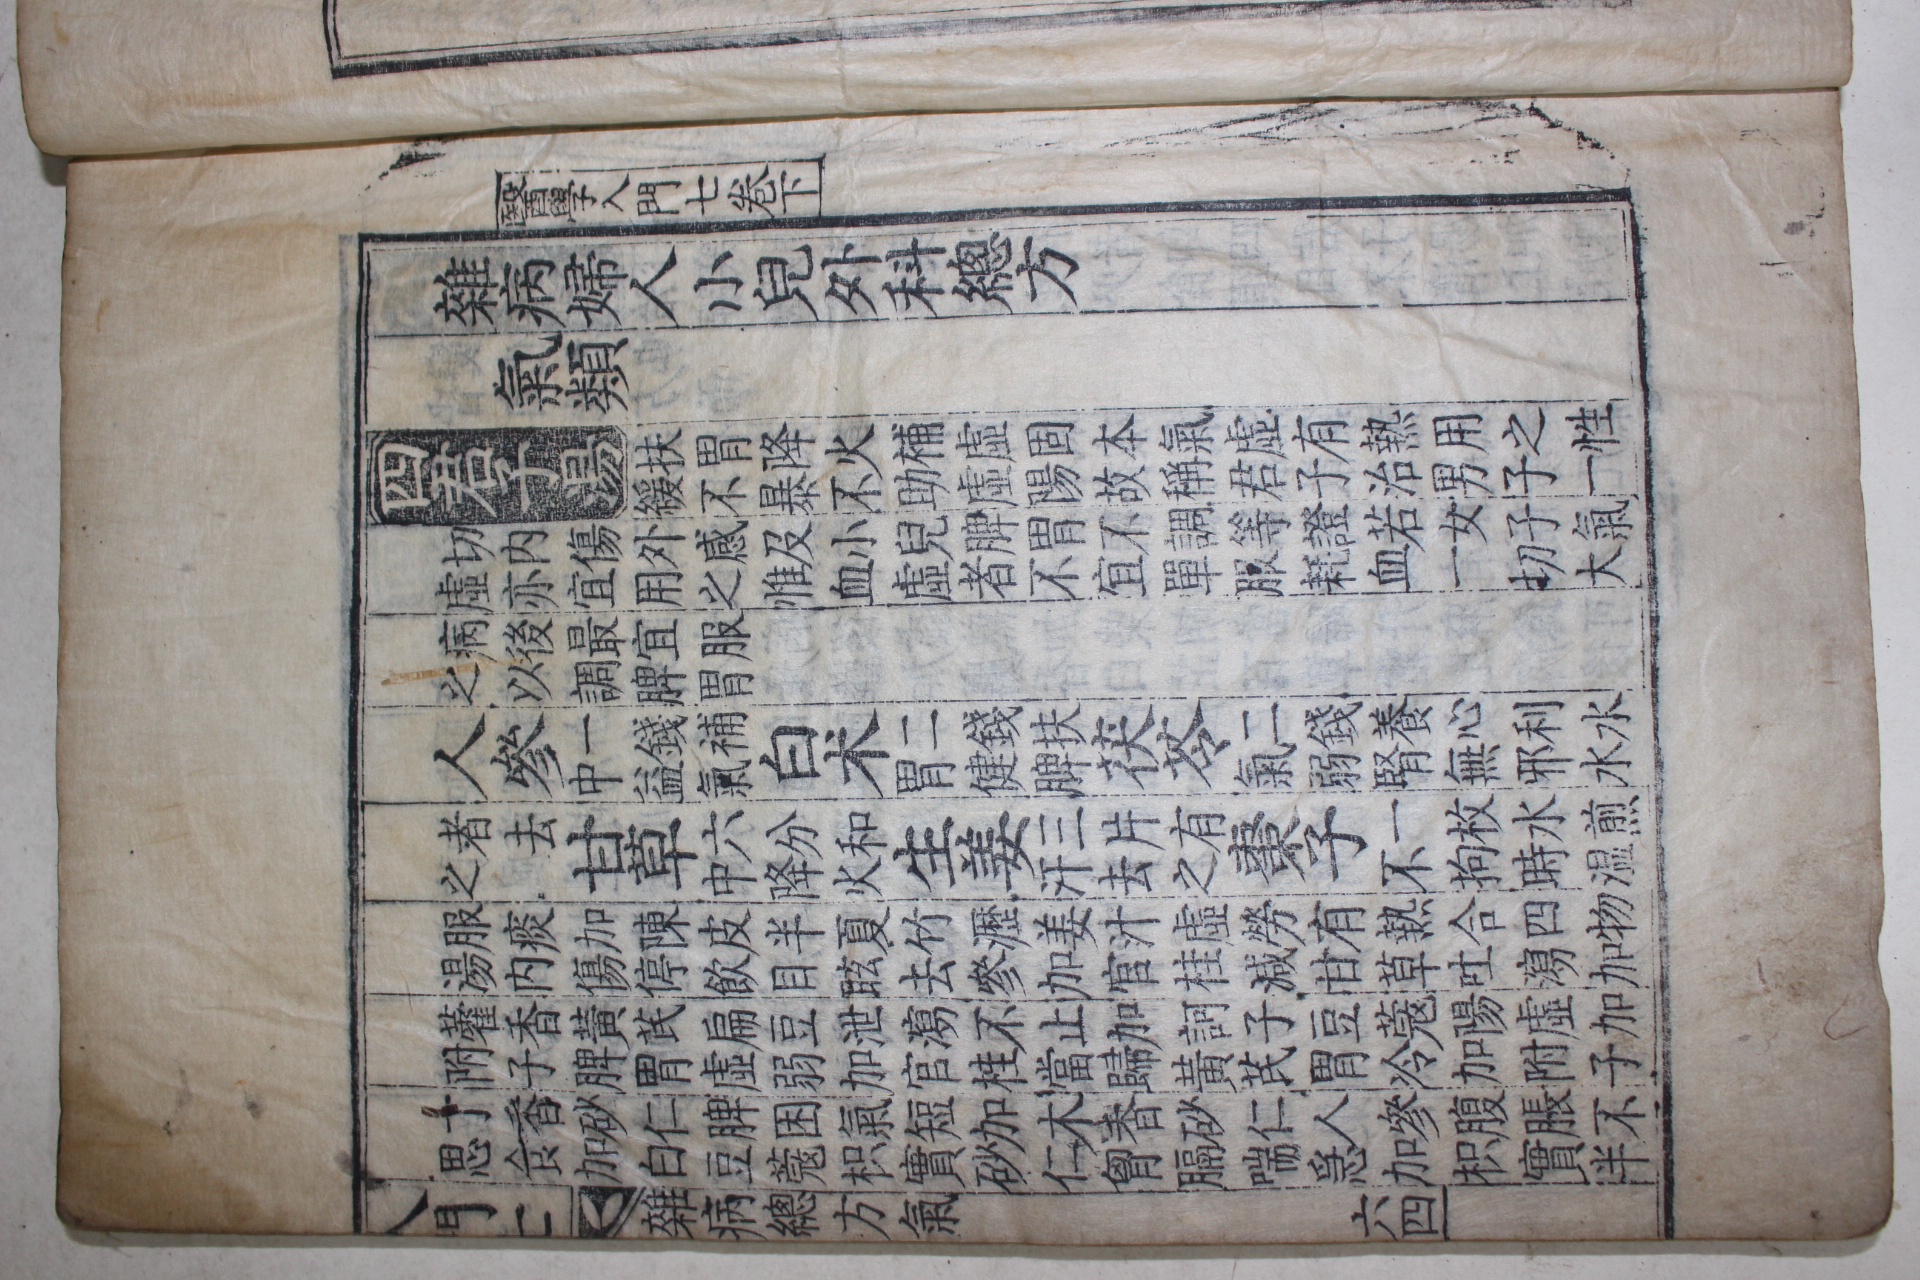 醫學入門七卷下
雜病婦人小兒外科總方
氣類
四君子湯
扶胃降火補虛固本氣虛有熱用之性
緩不暴不助虛陽故稱君子治男子一
切內傷外感及小兒脾胃不調等證若女子氣
虛亦宜用之惟血虛者不宜單服耗血一切大
病後最宜服
之以調脾胃
人參
一錢補
中益氣
白朮
二錢扶
胃健脾
茯苓
二錢養心利水
氣弱腎無邪水
者去
之
甘草
六分和
中降火
生姜
三片有
汗去之
棗子
一枚水煎
不拘時溫
服痰加陳皮半夏竹瀝姜汁虛勞有熱合四物
湯內傷停飲目眩去參加官桂減甘草吐瀉加
藿香黃芪扁豆泄瀉不止加訶子豆蔻陽虛加
附子脾胃虛弱加官桂當歸黃芪胃冷加附子
丁香砂仁脾困氣短加木香砂仁人參腹脹不
思食加白豆蔻枳實砂仁胷膈喘急加枳實半
入門
雜病總方氣
六四